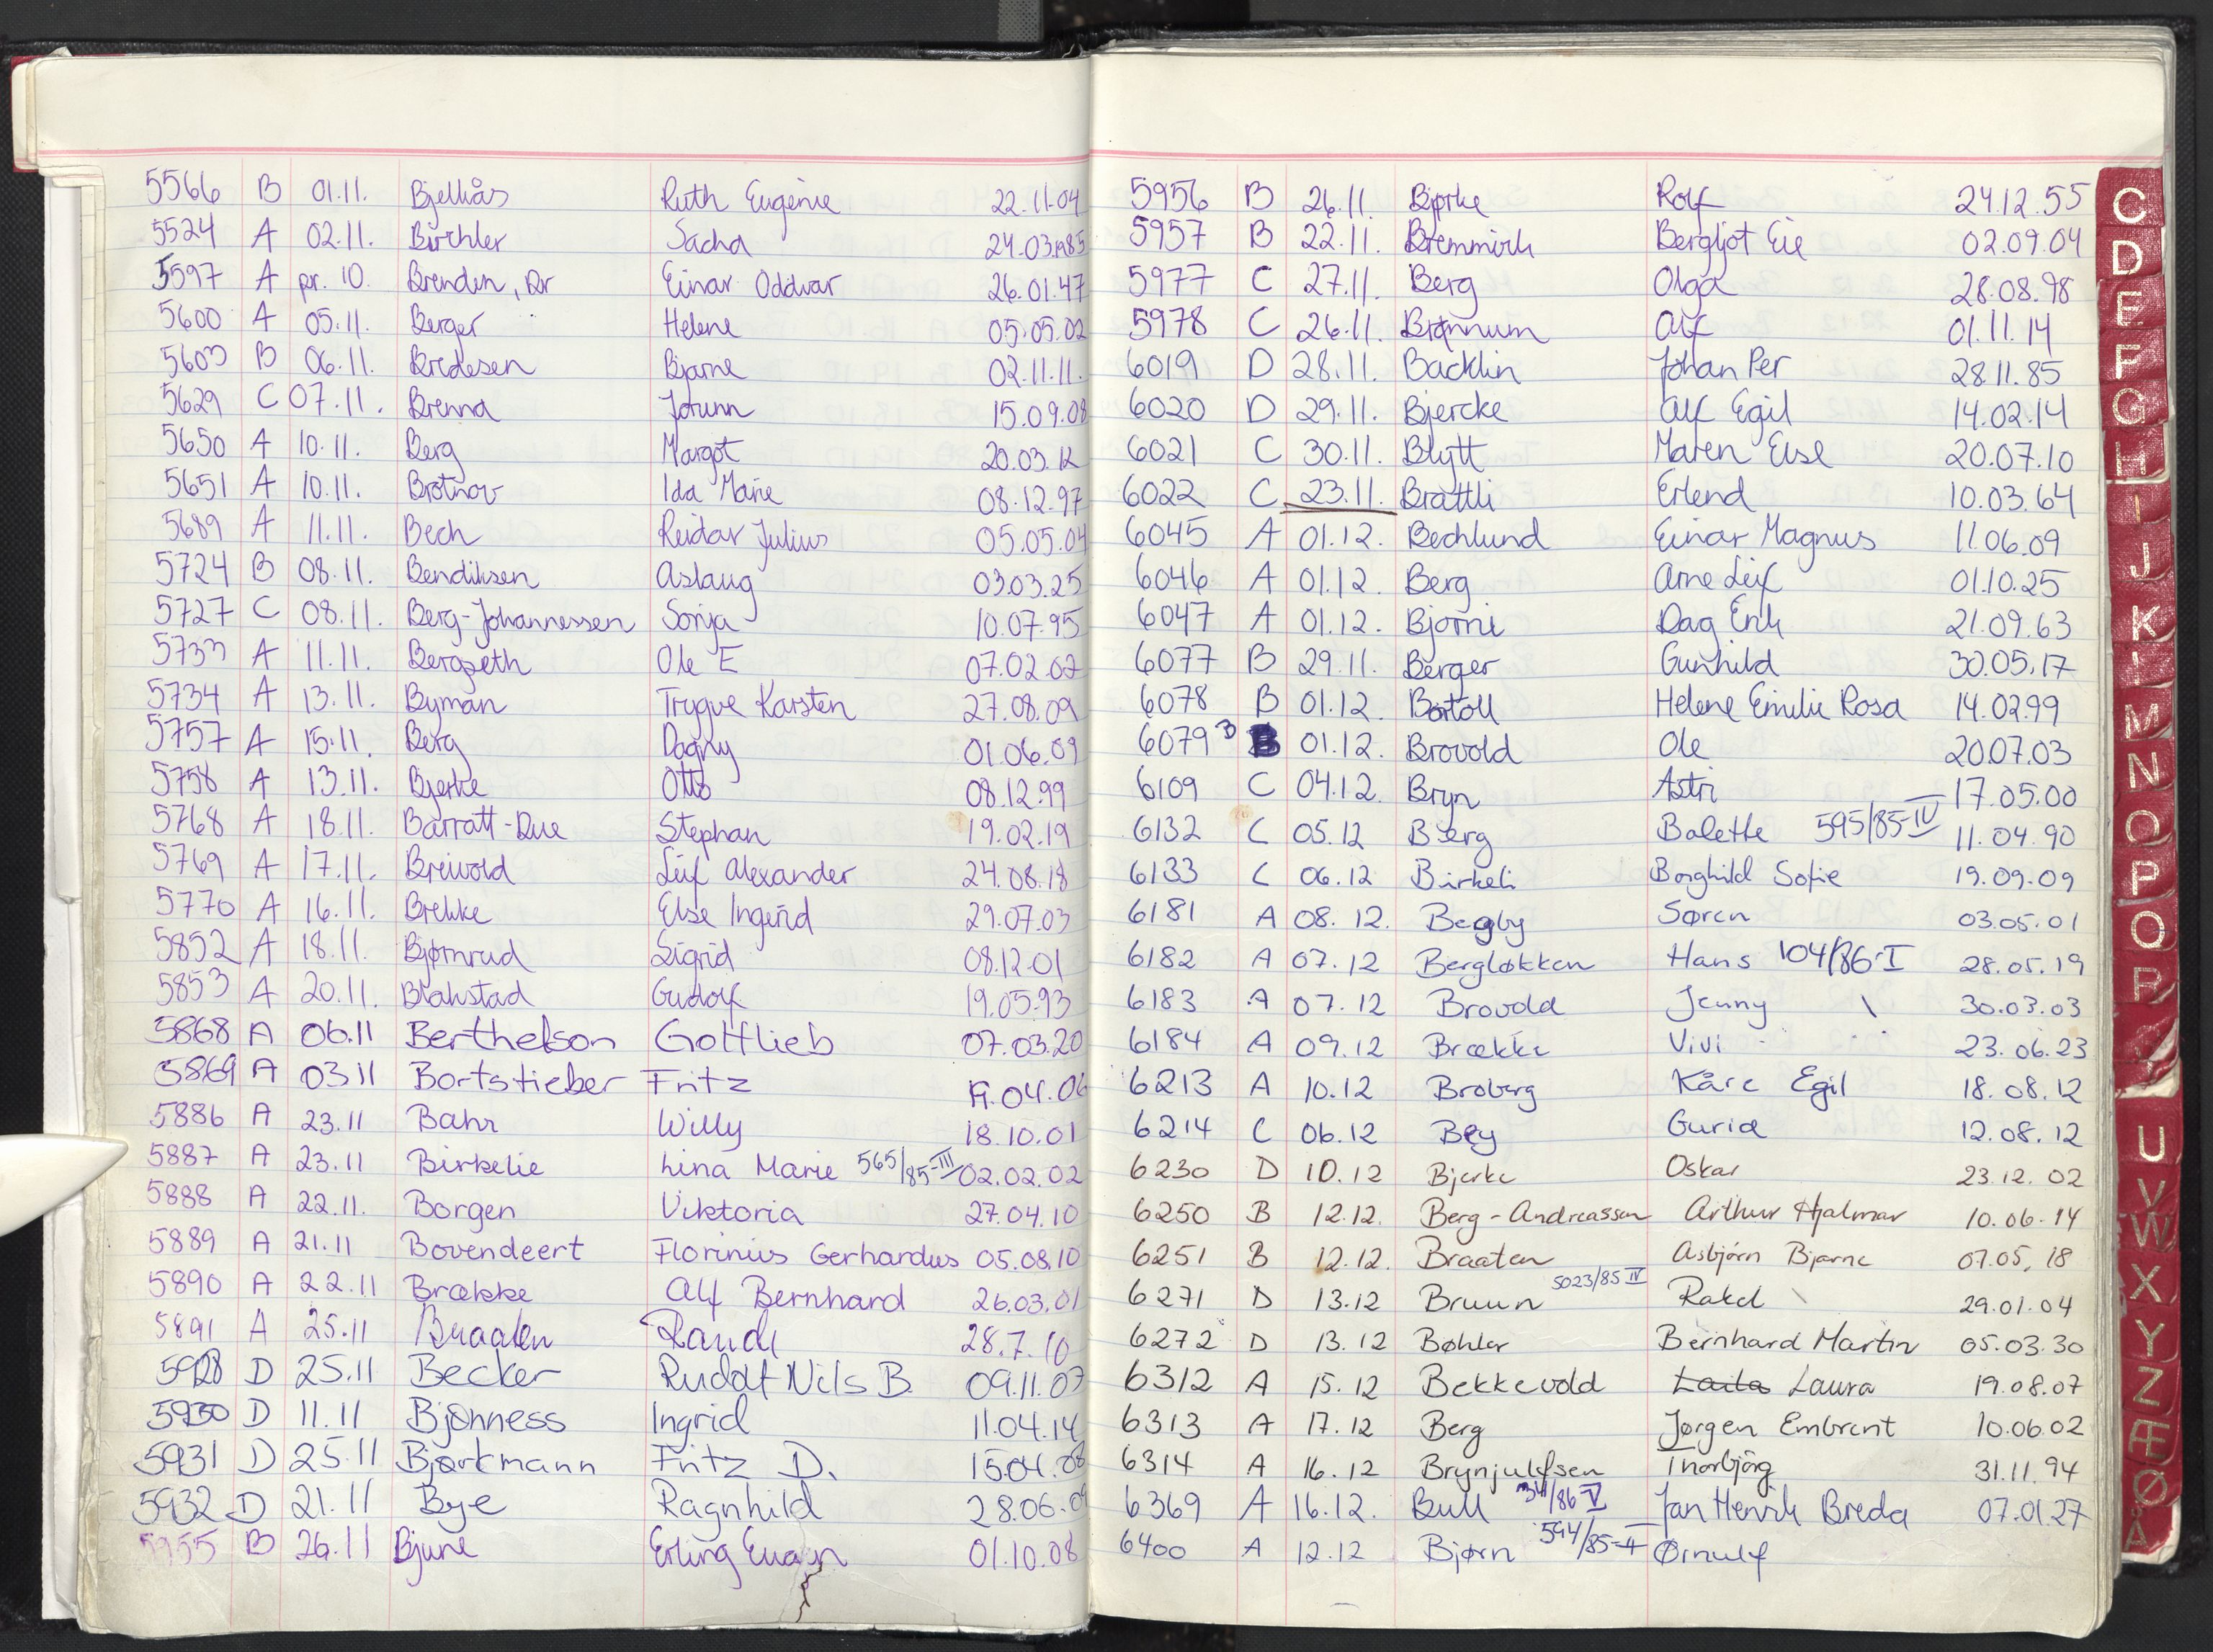 5566 B 01.11. Bjellås Ruth Eugénie 22.11.04
5524 A 02.11. Birchler Sacha 24.03.1985
5597 A pr. 10. Brenden, Dr Einar Oddvar 26.01.47
5600 A 05.11. Berger Helene 05.05.02
5603 B 06.11. Bredesen Bjarne 02.11.11.
5629 C 07.11. Brenna Jorunn 15.09.08
5650 A 10.11. Berg Margot 20.03.12
5651 A 10.11. Brotnov Ida Marie 08.12.97
5689 A 11.11. Bech Reidar Julius 05.05.04
5724 B 08.11. Bendiksen Aslaug 03.03.25
5727 C 08.11. Berg-Johannessen Sonja 10.07.95
5733 A 11.11. Bergseth Ole E 07.02.02
5734 A 13.11. Byman Trygve Karsten 27.08.09
5757 A 15.11. Berg Dagny 01.06.09
5758 A 13.11. Bjerke Otto 08.12.99
5768 A 18.11. Barratt-Due Stephan 19.02.19
5769 A 17.11. Breivold Leif Alexander 24.08.18
5770 A 16.11. Brekke Else Ingerid 29.07.03
5852 A 18.11. Bjørnrud Sigrid 08.12.01
5853 A 20.11. Blakstad Gudolf 19.05.93
5868 A 06.11 Berthelson Gottlieb 07.03.20
5869 A 03.11 Bortstieber Fritz 19.04.06
5886 A 23.11 Bahr Willy 18.10.01
5887 A 23.11 Birkelie Lina Marie 565/85-III 02.02.02
5888 A 22.11. Borgen Viktoria 27.04.10
5889 A 21.11 Bovendeert Florinius Gerhardus 05.08.10
5890 A 22.11 Brække Alf Bernhard 26.03.01
5891 A 25.11 Braaten Randi 28.7.10
5928 D 25.11 Becker Rudolf Nils B. 09.11.07
5930 D 11.11 Bjønness Ingrid 11.04.14
5931 D 25.11 Bjørkmann Fritz D. 15.04.08
5932 D 21.11 Bye Ragnhild 28.06.09
5955 B 26.11 Bjune Erling 01.10.08
5956 B 26.11. Bjørke Rolf 24.12.55
5957 B 22.11. Bremmirk Bergljot Eie 02.09.04
5977 C 27.11. Berg Olga 28.08.98
5978 C 26.11. Brønnum Alf 01.11.14
6019 D 28.11. Backlin Johan Per 28.11.85
6020 D 29.11. Bjercke Alf Egil 14.02.14
6021 C 30.11. Blytt Maren Else 20.07.10
6022 C 23.11. Brattli Erlend 10.03.64
6045 A 01.12. Bechlund Einar Magnus 11.06.09
6046 A 01.12. Berg Arne Leif 01.10.25
6047 A 01.12. Bjorni Dag Erik 21.09.63
6077 B 29.11. Berger Gunhild 30.05.17
6078 B 01.12. Bortoll Helene Emilie Rosa 14.02.99
6079 B B 01.12. Brovold Ole 20.07.03
6109 C 04.12. Bryn Astri 17.05.00
6132 C 05.12 Bierg Balette 595/85-IV 11.04.90
6133 C 06.12 Birkeli Borghild Sofie 19.09.09
6181 A 08.12. Begby Søren 03.05.01
6182 A 07.12 Bergløkken Hans 104/86-I 28.05.19
6183 A 07.12 Brovold Jenny 30.03.03
6184 A 09.12 Brække Vivi 23.06.23
6213 A 10.12 Broberg Kåre Egil 18.08.12
6214 C 06.12 Bey Gurid 12.08.12
6230 D 10.12 Bjerke Oskar 23.12.02
6250 B 12.12. Berg-Andreassen Arthur Hjalmar 10.06.14
6251 B 12.12. Braaten Asbjørn Bjarne 07.05.18
6271 D 13.12 Bruun 5023/85 IV Rakel 29.01.04
6272 D 13.12 Bøhler Bernhard Martin 05.03.30
6312 A 15.12 Bekkevold Laila Laura 19.08.07
6313 A 17.12 Berg Jørgen Embret 10.06.02
6314 A 16.12 Brynjulfsen Thorbjørg 31.11.94
6369 A 16.12. Bull 311/86 V Jan Henrik Breda 07.01.27
6400 A 12.12 Bjørn 594/85-II Ørnulf
C
D
E
F
G
H
I
J
K
L
M
N
O
P
Q
R
U
V
W
X
Y
Z
Æ
Ø
Å